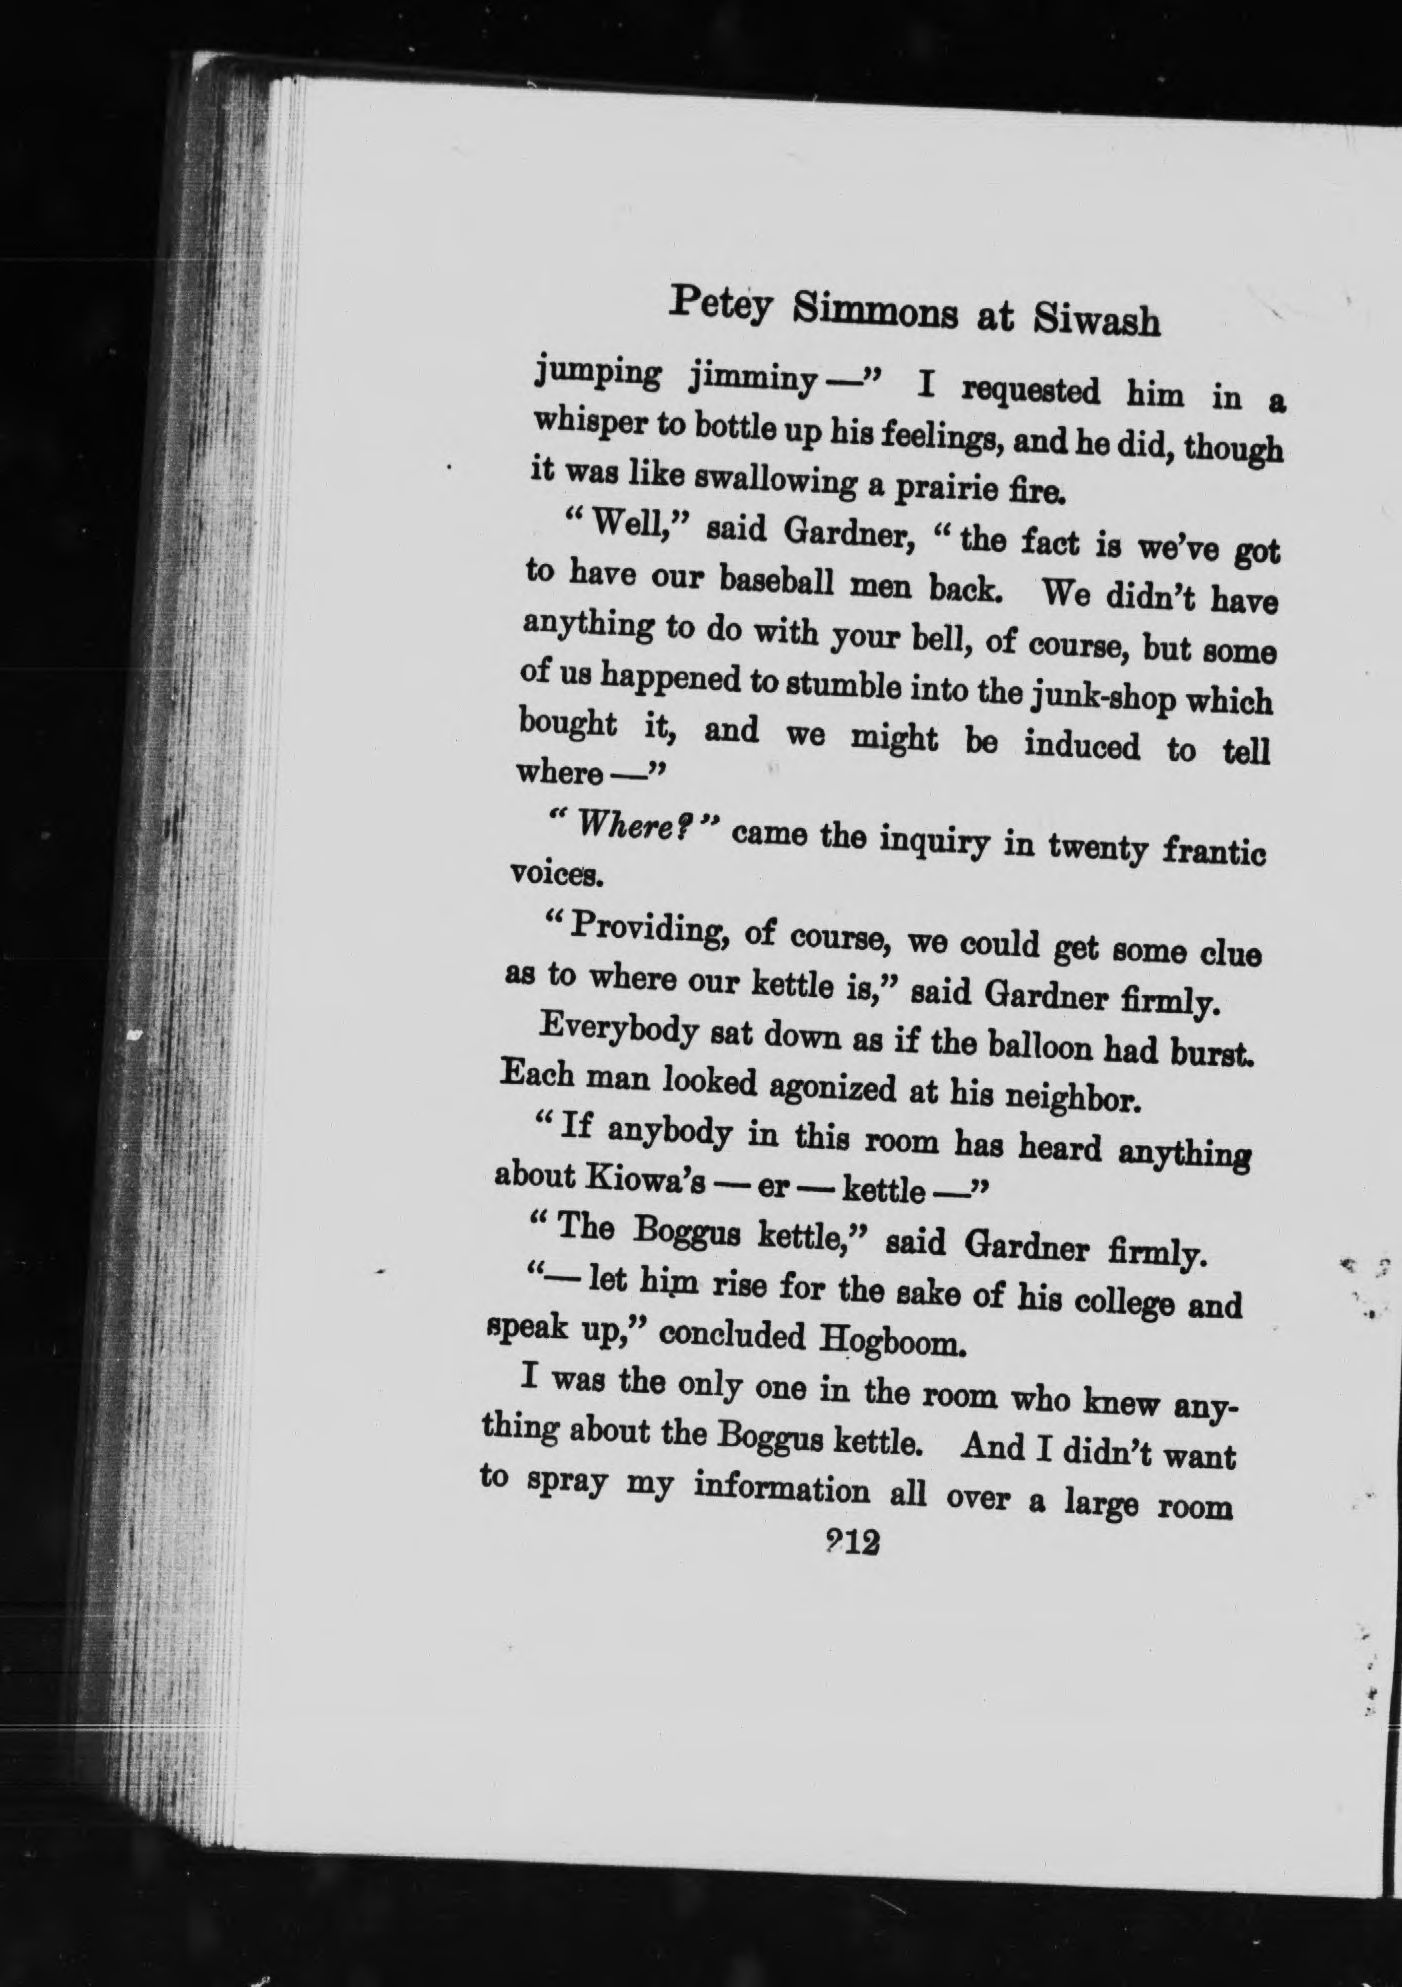 Petey Simmons at Siwash
jumping jimminy—” I requested him in a
whisper to bottle up his feelings, and he did, though
it was like swallowing a prairie fire.
“Well,” said Gardner, “the fact is we’ve got
to have our baseball men back. We didn’t have
anything to do with your bell, of course, but some
of us happened to stumble into the junk-shop which
bought it, and we might be induced to tell
where—”
“Where?” came the inquiry in twenty frantic
voices.
“Providing, of course, we could get some clue
as to where our kettle is,” said Gardner firmly.
Everybody sat down as if the balloon had burst.
Each man looked agonized at his neighbor.
“If anybody in this room has heard anything
about Kiowa’s—er—kettle—”
“The Boggus kettle,” said Gardner firmly.
“—let him rise for the sake of his college and
speak up,” concluded Hogboom.
I was the only one in the room who knew any-
thing about the Boggus kettle. And I didn’t want
to spray my information all over a large room
212